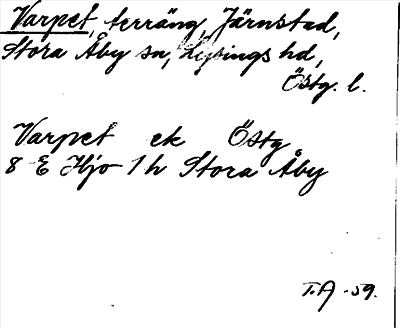 Varpet, terräng, Järnstad,
Stora Åby sn, Lysings hd,
Östg. l.
Varpet ek Östg
8 E Hjo 1h Stora Åby
T.A -59.